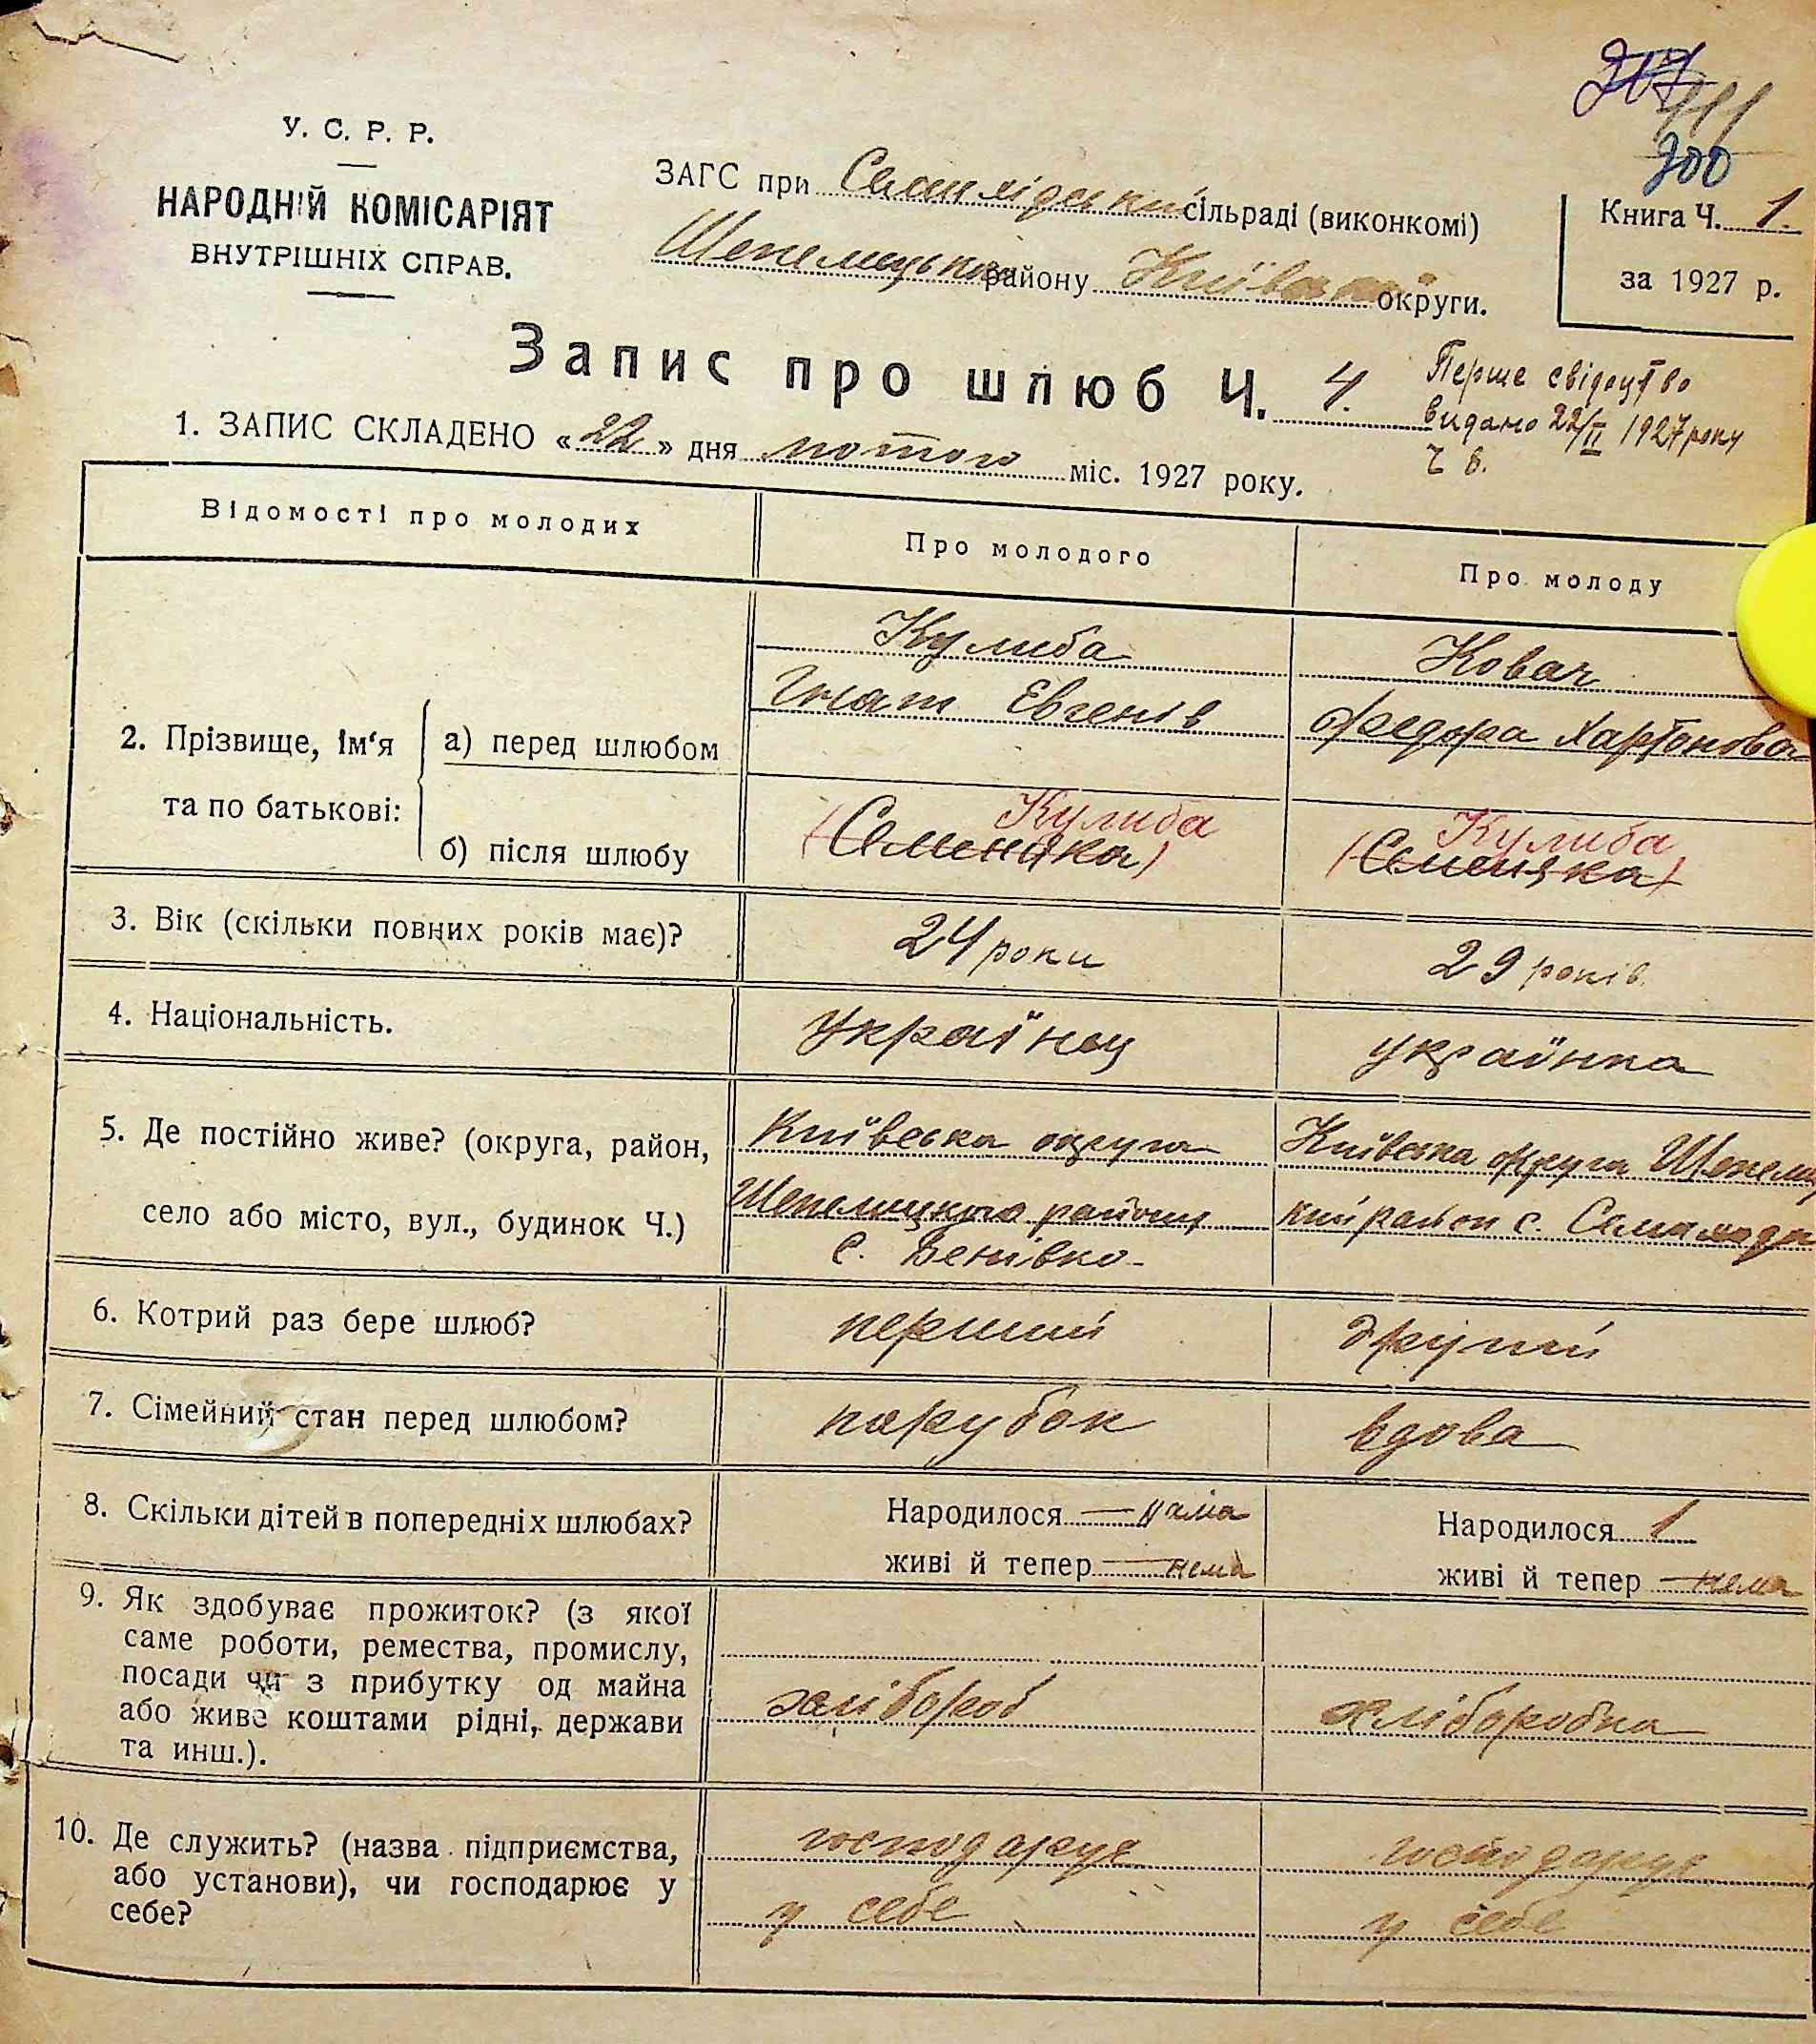 200
У. С. Р. Р.
НАРОДНІЙ КОМІСАРІЯТ
ВНУТРІШНІХ СПРАВ.
ЗАГС при сільраді (виконкомі)
району Київської округи.
Книга Ч. 1.
за 1927 р.
Запис про шлюб Ч. 4.
Перше свідоцтво
видано 22/II 1927 року
Ч 8.
1. ЗАПИС СКЛАДЕНО «22» дня лютого міс. 1927 року.
Відомості про молодих
Про молодого
Про молоду
2. Прізвище, ім'я та по батькові:
а) перед шлюбом
Кулиба
Гнат Евгенів
Ковач
Федора Хартонова
б) після шлюбу
Кулиба
(Семеняка)
Кулиба
(Семеняка)
3. Вік (скільки повних років має)?
24 роки
29 років
4. Національність.
Українец
українка
5. Де постійно живе? (округа, район,
село або місто, вул., будинок Ч.)
Київська округа
Шепелицького району
с. Бенівко
Київська округа Шепели
кий район с.
6. Котрий раз бере шлюб?
перший
другий
7. Сімейний стан перед шлюбом?
парубок
вдова
8. Скільки дітей в попередніх шлюбах?
Народилося — нема
живі й тепер — нема
Народилося 1
живі й тепер — нема
9. Як здобуває прожиток? (з якої
саме роботи, ремества, промислу,
посади чи з прибутку од майна
або живе коштами рідні, держави
та инш.).
хлібороб
хліборобка
10. Де служить? (назва підприємства,
або установи), чи господарює у
себе?
господарує
у себе
господарує
у себе